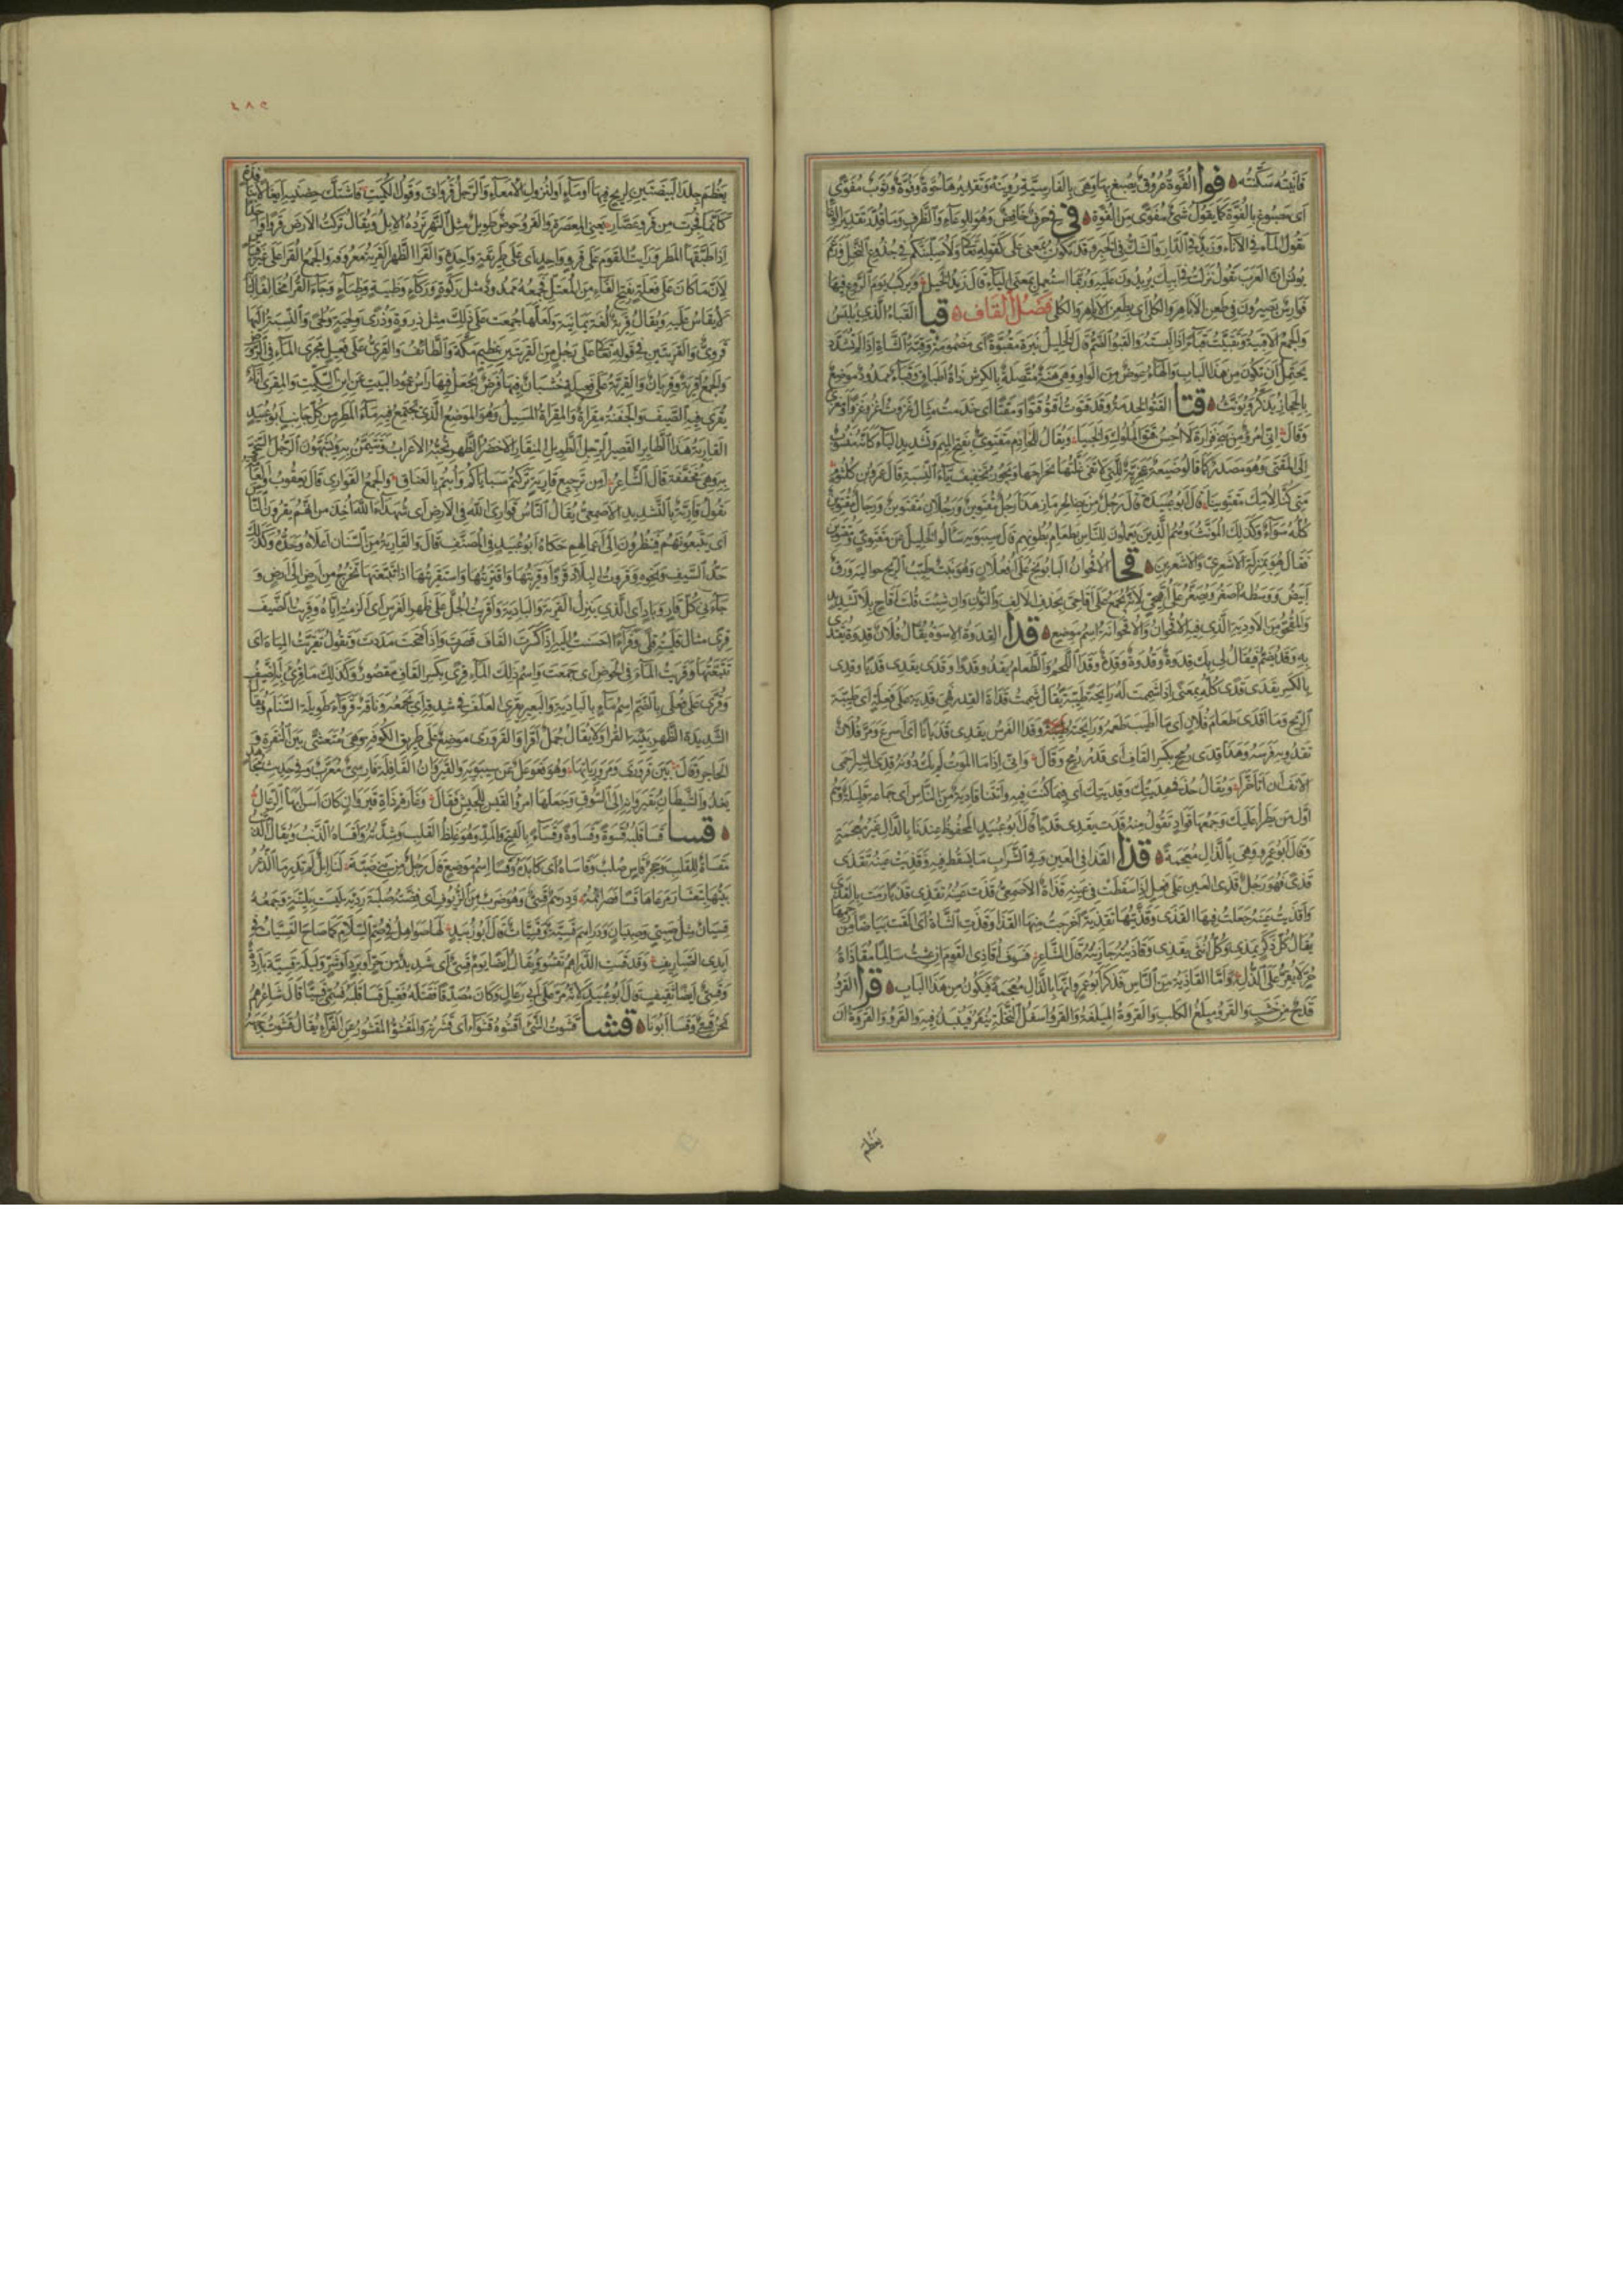 فأيته سكنته فوا الفوة عروق يصبغ بها وهي بالفارسية روينه وتقديرها حوة وقوة وثوب مفوى
اى مصبوغ بالفوة كما يقول شئ مقوى من القوة في في حرف خافض وهو للوعاء والظرف وما قدر تقدير الوعاء
تقول الماء في الاناء وزيد في الدار والشك في الخبر وقد تكون بمعنى على كقوله تعالى ولاصلبنكم في جذوع النخل وزعم
يونس ان العرب تقول نزلت في ابيك يريدون عليه وربما استعمل بمعنى الباء قال زيد الخيل ويركب يوم الروع فيها
فوارس بصيرون في طعن الاباهر والكلى اى بطعن الاباهر والكلى فصل القاف قبا القباء الذي يلبس
والجمع الاقبية وتقبيت قباء اذا لبسته والقبو الضم قال الخليل نبرة مقبوة اى مضمومة وقبة الشاة اذا لم تشدد
يحتمل ان تكون من هذا الباب والهاء عوض من الواو وهي هنة متصلة بالكرش ذات اطباق وقباء ممدود موضع
بالحجاز يذكر ويؤنث قتا القتو الخدمة وقد قتوت اقتو قتوا ومقتا اى خدمت مثال غزوت اغزو غزوا ومغزى
وقال انى امرؤ من بني فزارة لا احسن قتو الملوك والخببا ويقال للخادم مقتوى بفتح الميم وتشديد الياء كانه منسوب
الى المقتى وهو مصدر كما قالوا ضيعة عجزية للتى لا تفي غلتها بخراجها ويجوز تخفيف ياء النسبة قال عمرو بن كلثوم
متى كنا لامك مقتوينا قال ابو عبيدة قال رجل من بني الحرماز هذا رجل مقتوين ورجلان مقتوين ورجال مقتوين
كله سواء وكذلك المؤنث وهم الذين يعملون للناس بطعام بطونهم قال سيبويه سالوا الخليل عن مقتوى ومقتوين
فقال هو بمنزلة الاشعري والاشعرين قحا الاقحوان البابونج على افعلان وهو نبت طيب الريح حواليه ورق
ابيض ووسطه اصفر ويصغر على اقيحي لانه يجمع على اقاحي بحذف الالف والنون وان شئت قلت اقاح بلا تشديد
والمقحو من الادوية الذي فيه الاقحوان والاقحوانة اسم موضع قدا القدوة الاسوة يقال فلان قدوة يقتدى
به وقد يضم فيقال لي بك قدوة وقدوة وقدة وقدا اللحم والطعام يقدو قدوا وقدى يقدى قديا وقدى
بالكسر يقدى قدى كله بمعنى اذا شممت له رائحة طيبة يقال شممت قداة القدر فهي قدية على فعلة اى طيبة
الريح وما اقدى طعام فلان اى ما اطيب طعمه ورائحته وقدا الفرس يقدى قديانا اى اسرع ومر فلان
تقدو به فرسه وهذا قدى رمح بكسر القاف اى قدر رمح وقال وانى اذا ما الموت لم يك دونه قدى الشبر احمى
الانف ان اتاخرا ويقال خذ في هديتك وقديتك اى فيما كنت فيه واتتنا قادية من الناس اى جماعة قليلة وهم
اول من يطرأ عليك وجمعها قواد تقول منه قدت تقدى قديا قال ابو عبيد المحفوظ عندنا بالدال غير معجمة
وقال ابو عمرو وهي بالذال معجمة قذا القذا في العين وفي الشراب ما يسقط فيه وقذيت عينه تقذى
قذى فهو رجل قذى العين على فعل اذا سقطت في عينه قذاة الاصمعي قذت عينه تقذى قذيا رمت بالقذى
واقذيت عينه جعلت فيها القذى وقذيتها تقذية اخرجت منها القذا وقذت الشاة اى القت بياضا من رحمها
يقال كل ذكر يمذى وكل انثى يقذى وقاذيته جازيته قال الشاعر فسوف اقاذي القوم ان عشت سالما مقاذاة
حر لا يقر على الذل واما القاذية من الناس فذكر ابو عمرو انها بالذال معجمة فيكون من هذا الباب قرا القرو
قدح من خشب والقرو ميلغ الكلب والقروة الميلغة والقرو اسفل النخلة ينقر فينبذ فيه والقرو والقروة ان
يعظم
٤٨٩
يعظم جلد البيضتين لريح فيها او ماء او لنزول الامعاء والرجل قرواني وقول الكميت فاشتك خصييه ايغالا بنافذة
كانما فجرت من قرو عصار يعني المعصرة والقرو حوض طويل مثل النهر ترده الابل ويقال تركت الارض قروا واحدا
اذا طبقها المطر ورايت القوم على قرو واحد اى على طريقة واحدة والقرا الظهر القرية معروفة والجمع القرا على غير قياس
لان ما كان على فعلة بفتح الفاء من المعتل فجمعه ممدود مثل ركوة وركاء وظبية وظباء وجاء القرا مخالفا لبابه
لا يقاس عليه ويقال قرية لغة يمانية ولعلها جمعت على ذلك مثل ذروة وذرى ولحية ولحى والنسبة اليها
قروى والقريتين في قوله تعالى على رجل من القريتين عظيم مكة والطائف والقرى على فعيل مجرى الماء في الروض
والجمع اقرية وقريان والقرية على فعيلة خشبات فيها فرض يجعل فيها راس عمود البيت عن ابن السكيت والمقرى اناء
يقرى فيه الضيف والجفنة مقراة والمقراة المسيل وهو الموضع الذي يجتمع فيه ماء المطر من كل جانب ابو عبيد
القارية هذا الطائر القصير الرجل الطويل المنقار الاخضر الظهر تحبه الاعراب وتتيمن به ويشبهون الرجل السخي
به وهي مخففة قال الشاعر امن ترجيع قارية تركتم سباياكم وابتم بالعناق والجمع القوارى قال يعقوب والعامة
تقول قارية بالتشديد الاصمعي يقال الناس قوارى الله في الارض اى شهداء الله اخذ من انهم يقرون الناس
اى يتبعونهم فينظرون الى اعمالهم حكاه ابو عبيد في المصنف قال والقارية من السنان اعلاه وحده وكذلك
حد السيف ونحوه وقروت البلاد قروا وقريتها واقتريتها واستقريتها اذا تتبعتها تخرج من ارض الى ارض و
جاءني كل قار وباد اى الذي ينزل القرية والبادية واقريت الجل على ظهر الفرس اى الزمته اياه وقريت الضيف
قرى مثال قليته قلى وقراء احسنت اليه اذا كسرت القاف قصرت واذا فتحت مددت وتقول تقريت المياه اى
تتبعتها وقريت الماء في الحوض اى جمعت واسم ذلك الماء قرى بكسر القاف مقصور وكذلك ما قرى به الضيف
وقرى على فعلى بالضم اسم ماء بالبادية والبعير يقرى العلف في شدقه اى يجمعه وناقة قرواء طويلة السنام ويقال
الشديدة الظهر بينة القرا ولا يقال جمل اقرا والقرورى موضع على طريق الكوفة وهي متعشى بين النقرة و
الحاجر وقال بين قرورى ومرورياتها وهو فعوعل عن سيبويه والقيروان القافلة فارسي معرب وفي حديث مجاهد
يغدو الشيطان بقيروانه الى السوق وجعلها امرؤ القيس للجيش فقال وغارة ذات قيروان كان اسرابها الرعال
قسا قسا قلبه قسوة وقساوة وقساء بالفتح والمد وهو غلظ القلب وشدته واقساه الذنب ويقال الذنب
مقساة للقلب وحجر قاس صلب وقاساه اى كابده وقسا اسم موضع قال رجل من بني ضبة لنا ابل لم تدر ما الذعر
بيتها بتعشار مرعاها قسا فصرائمه ودرهم قسي وهو ضرب من الزيوف اى فضته صلبة ردية ليست بلينة وجمعه
قسيان مثل صبي وصبيان ودراهم قسية وقسيات قال ابو زبيد لها صواهل في صم السلام كما صاح القسيات في
ايدى الصياريف وقد قست الدراهم تقسو ويقال ايضا يوم قسي اى شديد من حر او برد او شر وليلة قسية باردة
وقسي ايضا ثقيف قال ابو عبيد لانه مر على ابي رغال وكان مصدقا فقتله فقيل قسا قلبه فسمي قسيا قال شاعرهم
نحن قسي وقسا ابونا قشا قشوت الشئ اقشوه قشوا اى قشرته والمقشو المقشور عن الفراء يقال قشوت وجهه